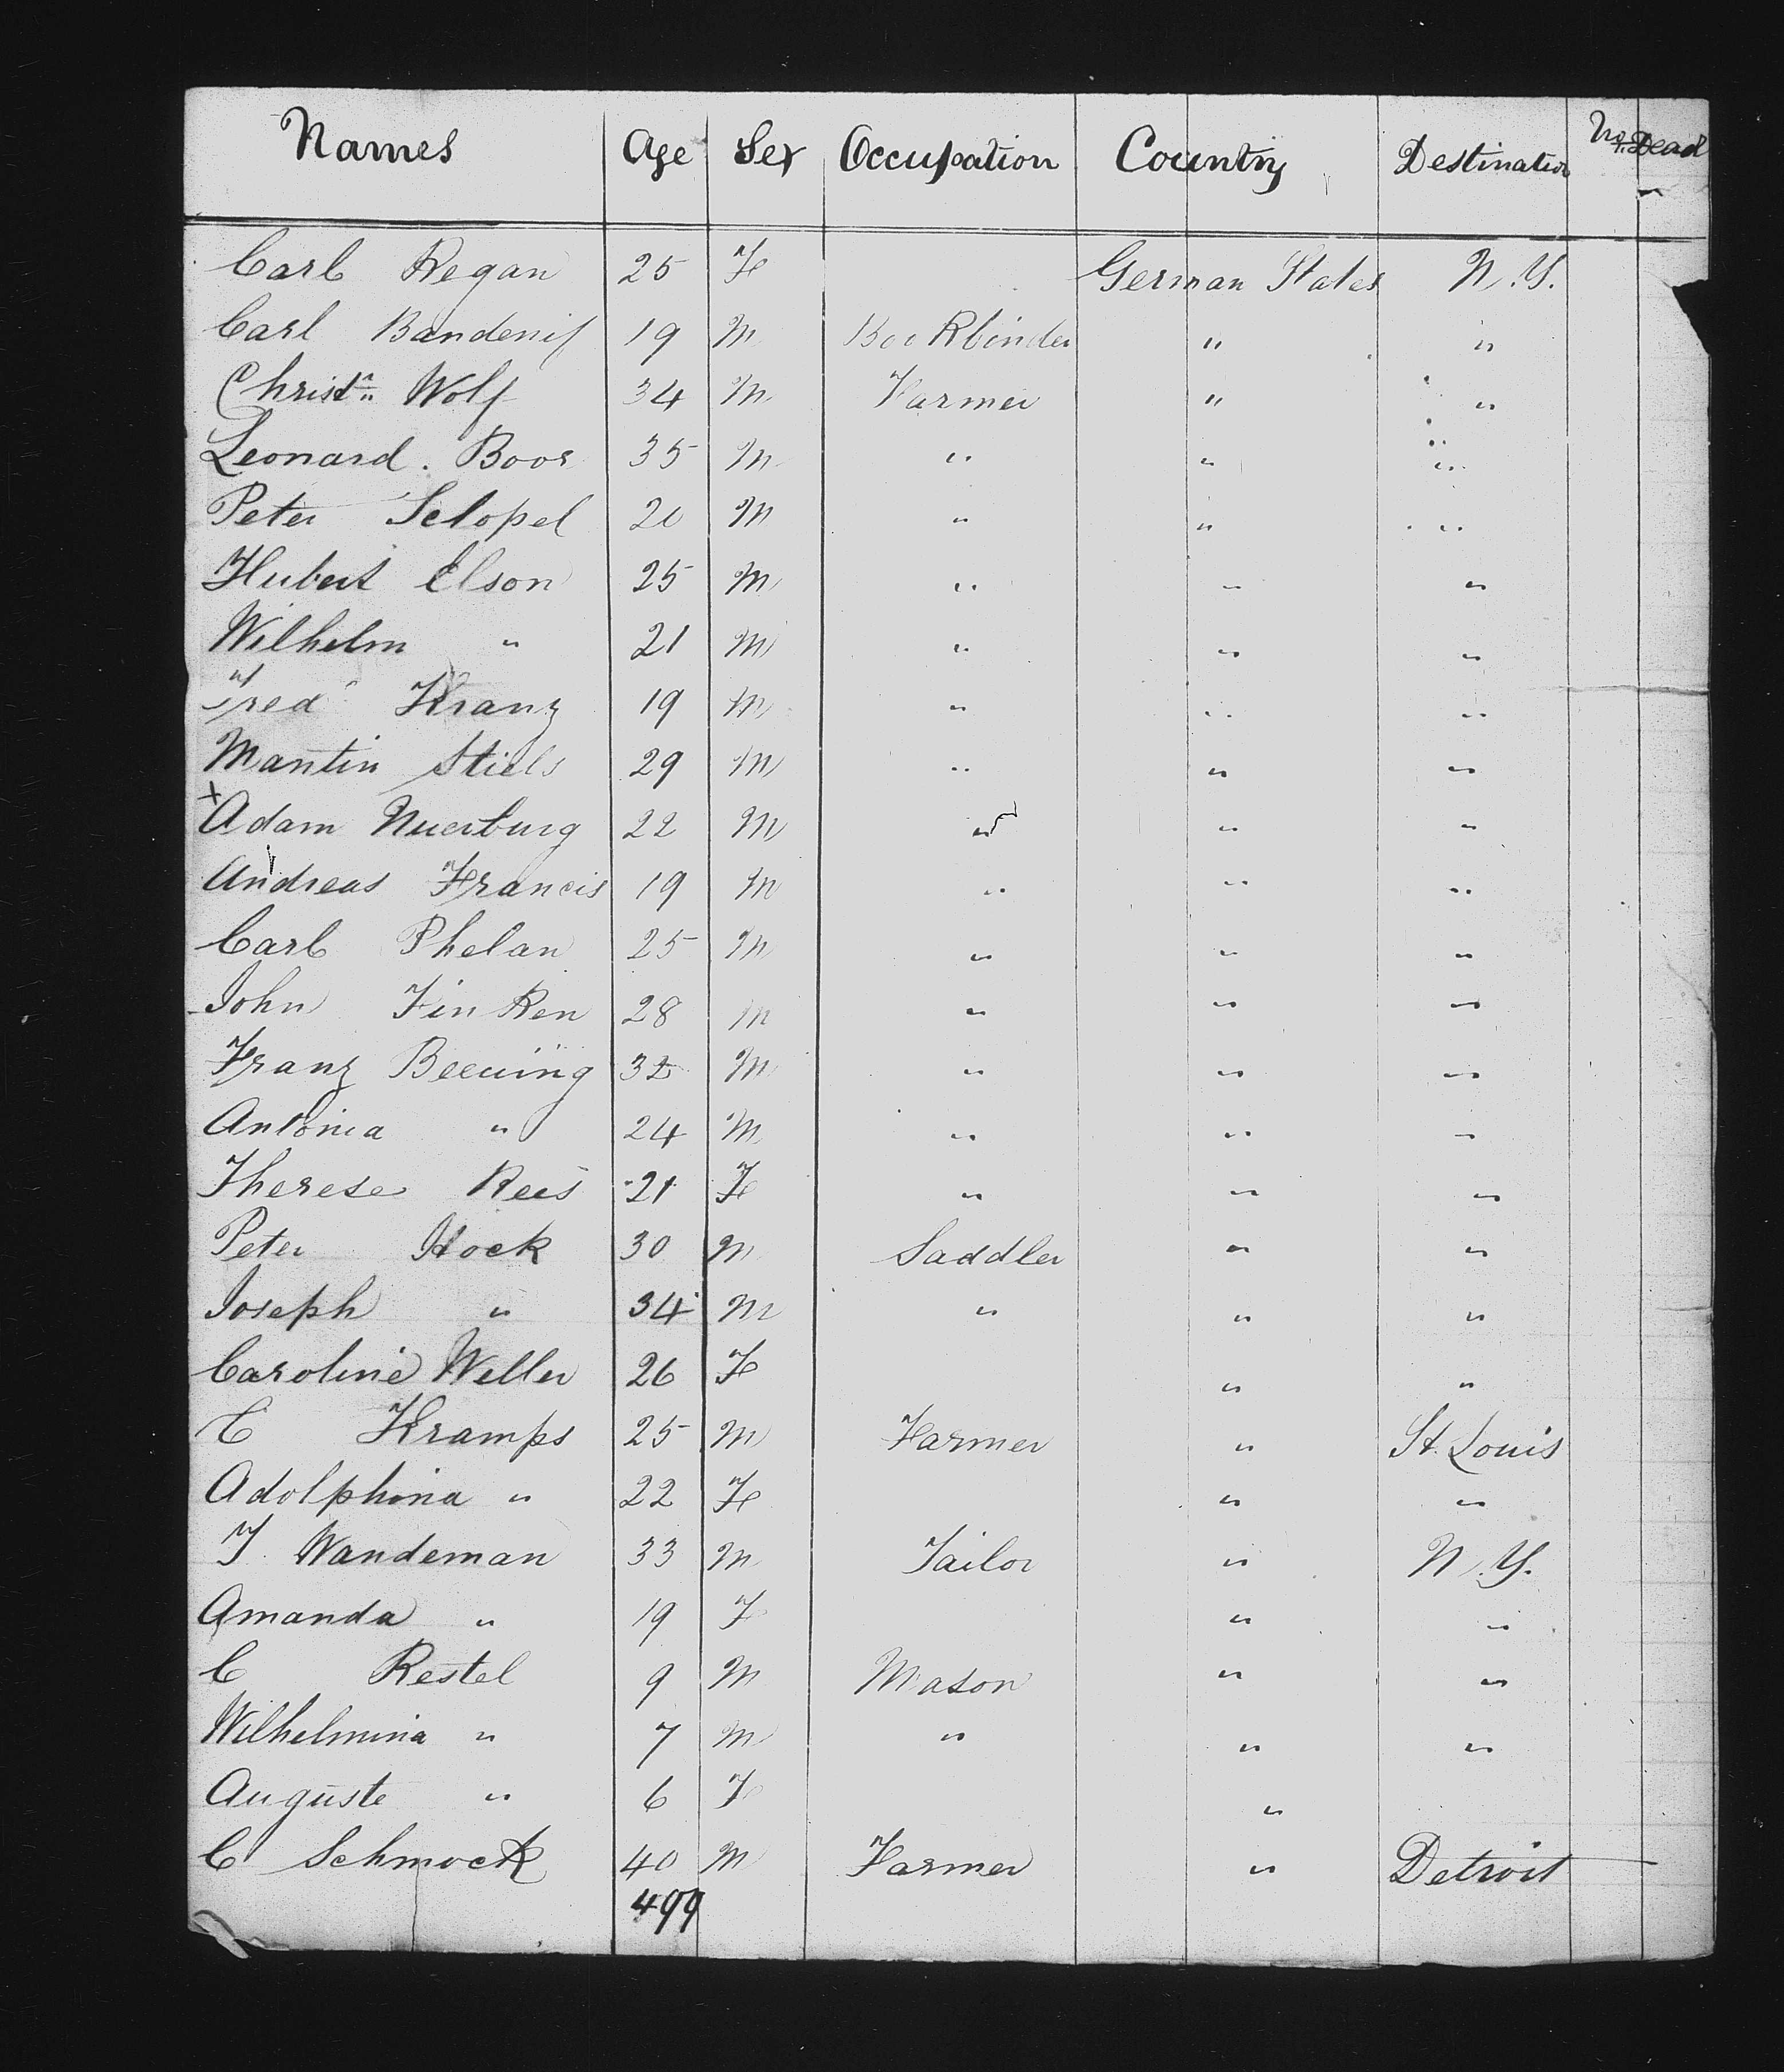 Names Age Sex Occupation Country Destination No. Dead
Carl Regan 25 F German States N.Y.
Carl 19 M Bookbinder " "
Christn Wolf 34 M Farmer " "
Leonard Boos 35 M " " "
Peter Sclopel 20 M " " "
Hubert Elson 25 M " " "
Wilhelm " 21 M " " "
Fred Kranz 19 M " " "
Martin Stiels 29 M " " "
Adam Nuerburg 22 M " " "
Andreas Francis 19 M " " "
Carl Phelan 25 M " " "
John Finken 28 M " " "
Franz 32 M " " "
Antonia " 24 M " " "
Therese Rees 21 F " " "
Peter Hock 30 M Saddler " "
Joseph " 34 M " " "
Caroline Weller 26 F " "
C Kramps 25 M Farmer " St. Louis
Adolphina " 22 F " "
J Wandeman 33 M Tailor " N.Y.
Amanda " 19 F " "
C Restel 9 M Mason " "
Wilhelmina " 7 M " " "
Auguste " 6 F "
C Schmock 40 M Farmer " Detroit
499